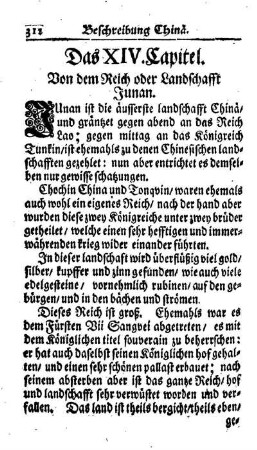 312 Beschreibung Chinâ.
Das XIV. Capitel.
Von dem Reich oder Landschafft
Junan.
JUnan ist die äusserste landschafft Chinâ/
und gräntzet gegen abend an das Reich
Lao; gegen mittag an das Königreich
Tunkin/ ist ehemahls zu denen Chinesischen landschafften
gezehlet: nun aber entrichtet es demselben
nur gewisse schatzungen.
Chochin China und Tonqvin/ waren ehemals
auch wohl ein eigenes Reich/ nach der hand aber
wurden diese zwey Königreiche unter zwey brüder
getheilet/ welche einen sehr hefftigen und immerwährenden
krieg wider einander führten.
In dieser landschafft wird überflüßig viel gold/
silber/ kupffer und zinn gefunden/ wie auch viele
edelgesteine/ vornehmlich rubinen/ auf den gebürgen/
und in den bächen und strömen.
Dieses Reich ist groß. Ehemahls war es
dem Fürsten Vii Sangvei abgetreten/ es mit
dem Königlichen titel souverain zu beherrschen:
er hat auch daselbst seinen Königlichen hof gehalten/
und einen sehr schönen pallast erbauet; nach
seinem absterben aber ist das gantze Reich/ hof
und landschafft sehr verwüstet worden und verfallen.
Das land ist theils bergicht/ theils eben/
ge-